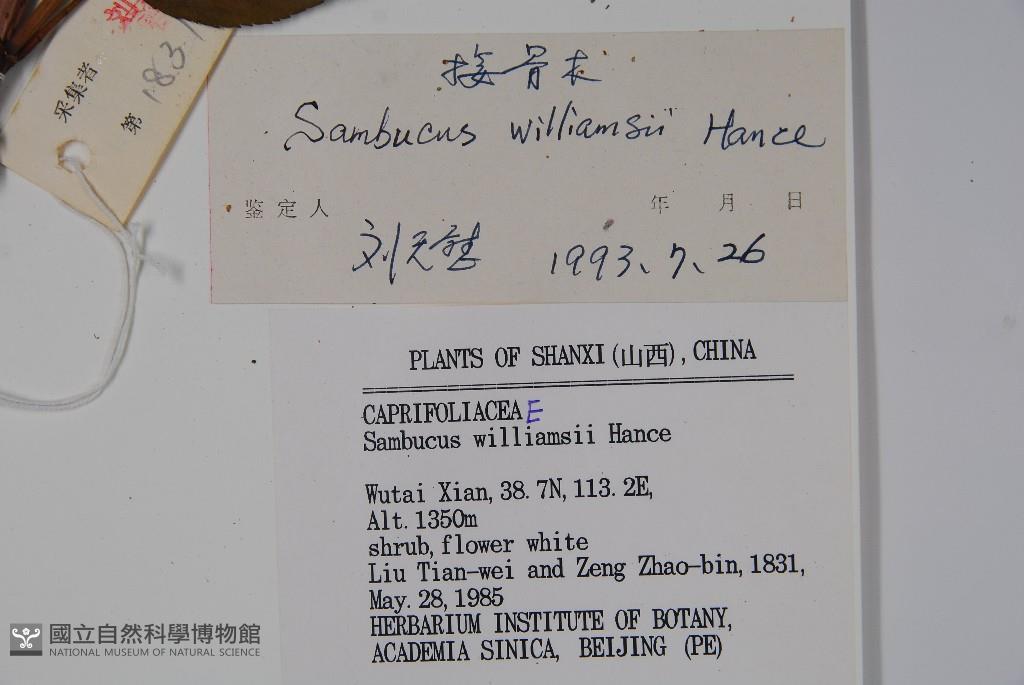 采集者
第 1831
接骨木
Sambucus williamsii Hance
鉴定人 年 月 日
刘天慰 1993、7、26
PLANTS OF SHANXI(山西), CHINA
CAPRIFOLIACEAE
Sambucus williamsii Hance
Wutai Xian, 38. 7N, 113. 2E,
Alt. 1350m
shrub, flower white
Liu Tian-wei and Zeng Zhao-bin, 1831,
May. 28, 1985
HERBARIUM INSTITUTE OF BOTANY,
ACADEMIA SINICA, BEIJING (PE)
國立自然科學博物館
NATIONAL MUSEUM OF NATURAL SCIENCE